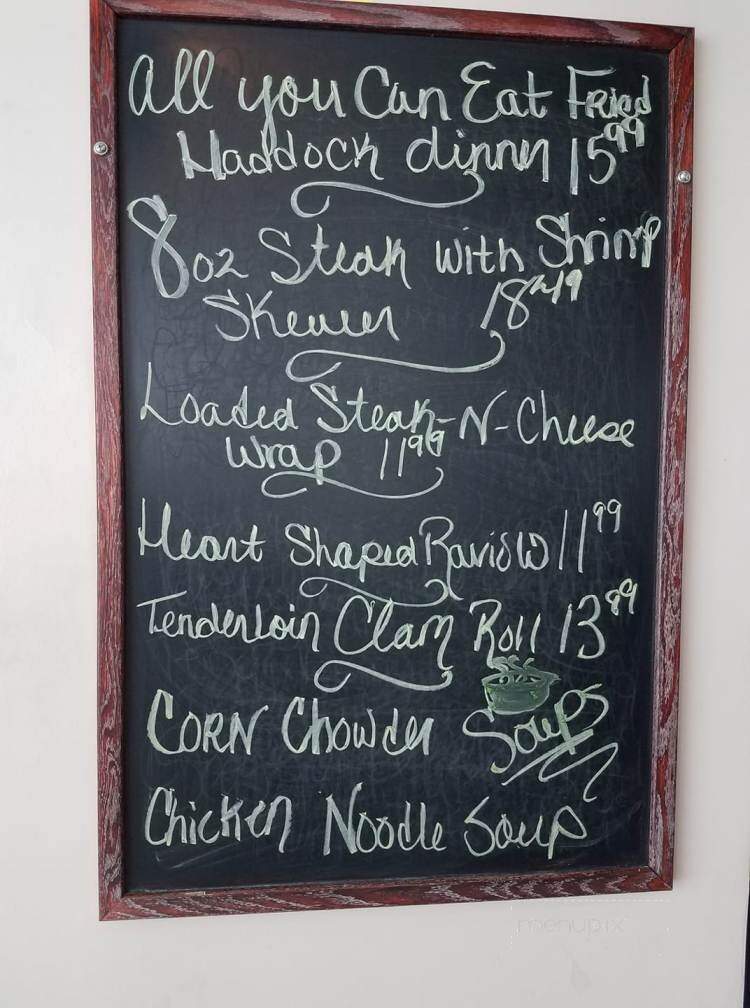 All you Can Eat Fried
Haddock dinner 15 99
8oz Steak with Shrimp
Skewer 18
Loaded Steak-N-Cheese
Wrap 11 99
Heart Shaped Ravioli 11 99
Tenderloin Clam Roll 13 89
CORN Chowder Soups
Chicken Noodle Soup
menupix